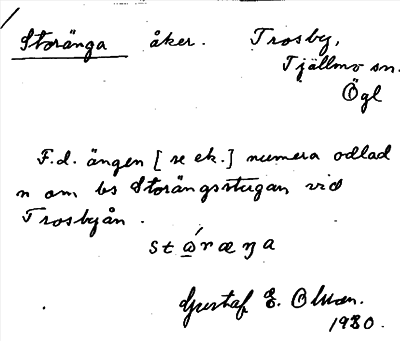 Storänga åker. Trosby,
Tjällmo sn.
Ögl
F.d. ängen [se ek.] numera odlad
n om bs Storängsstugan vid
Trosbyån.
Gustaf E. Olson.
1930.